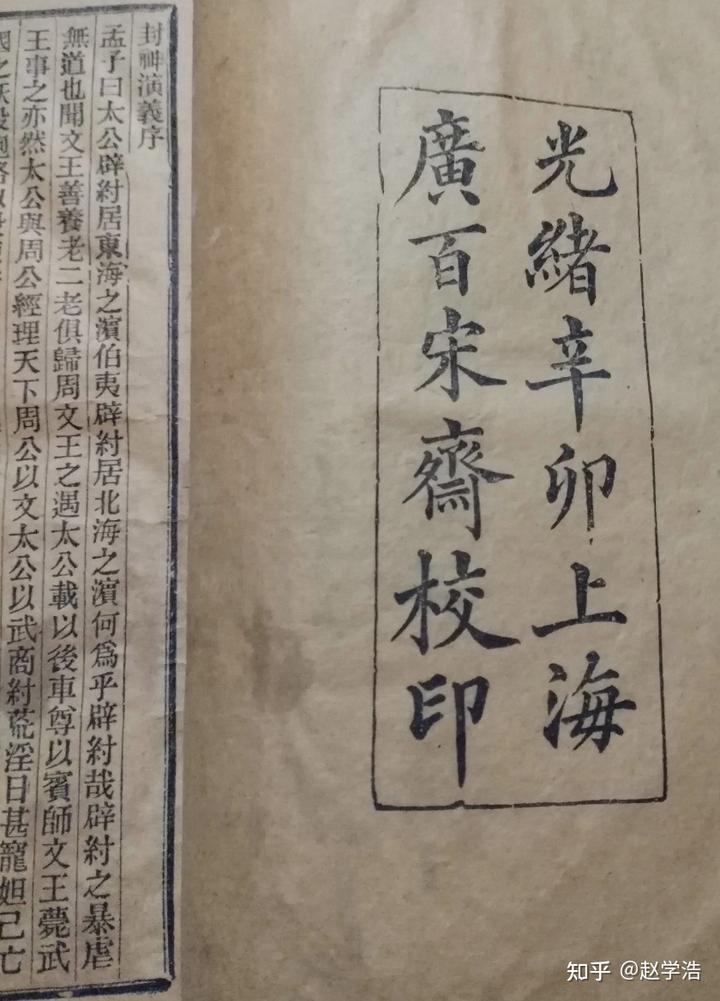 光緒辛卯上海
廣百宋齋校印
封神演義序
孟子曰太公辟紂居東海之濱伯夷辟紂居北海之濱何爲乎辟紂哉辟紂之暴虐
無道也聞文王善養老二老俱歸周文王之遇太公載以後車尊以賓師文王薨武
王事之亦然太公與周公經理天下周公以文太公以武商紂荒淫日甚寵妲己亡
國之妖
知乎 @赵学浩